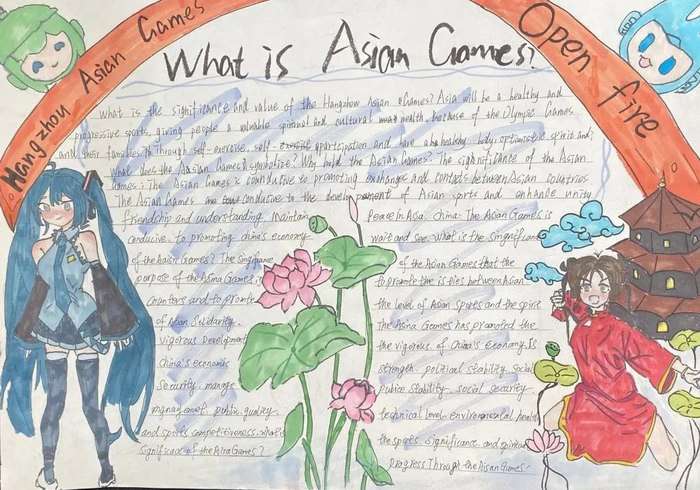 Hangzhou Asian Games
Open fire
What is Asian Games?
What is the significance and value of the Hangzhou Asian Games? Asia will be a healthy and
progressive sports, giving people a valuable spiritual and cultural health, because of the Olympic Games
and their families. Through self-exercise, self- participation and have a healthy body optimistic spirit and,
what does the Asian Games symbolize? Why hold the Asian Games? The significance of the Asian
Games: The Asian Games is conducive to promoting exchanges and contacts between Asian countries
The Asian Games are conducive to the development of Asian sports and enhance unity
friendship and understanding Maintain
conducive to promoting china's economy
of the Asian Games? The
porpose of the Asina Games is
counters and to promote
of Asian Solidarity.
vigorous Development
China's economic
Security manage
public quality
and sports competitiveness. what's
significase of the Asina Games?
Peace in Asia. China: The Asian Games is
wait and see. what is the singnificance
of the Asian Games that the
to promote the is ples between Asian
the level of Asian spores and the spice
The Asina Games has promoted the
the vigorous of china's economy. Is
strength political stability. Social
Pubice stability. social security
technical level environmental health
the sports significance and spiritual
Progress Through the Asian Games.